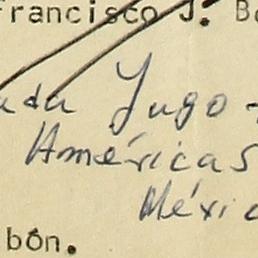 Francisco J. B
ada Yugo
Américas
Méxic
bón.